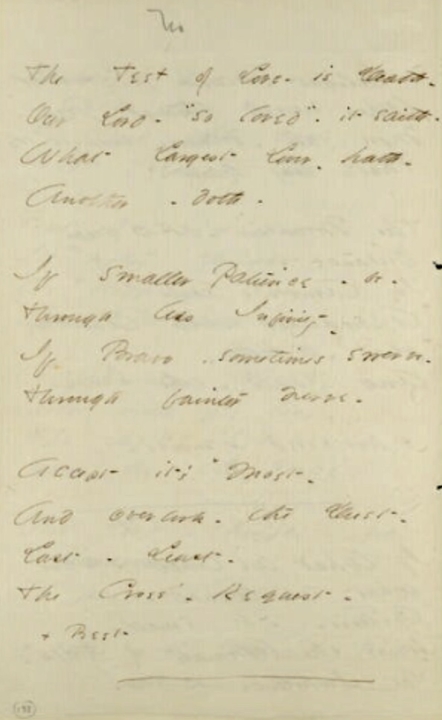 The Test of Love - is Death -
Our Lord - "so loved" - it saith -
What Largest Lover - hath -
Another - doth -
If smaller Patience - be -
Through less Infinity -
If Bravo - sometimes swerve -
Through fainter Nerve -
Accept it's Most -
And overlook - the Dust -
Last - Least -
The Cross' - Request -
+ Best